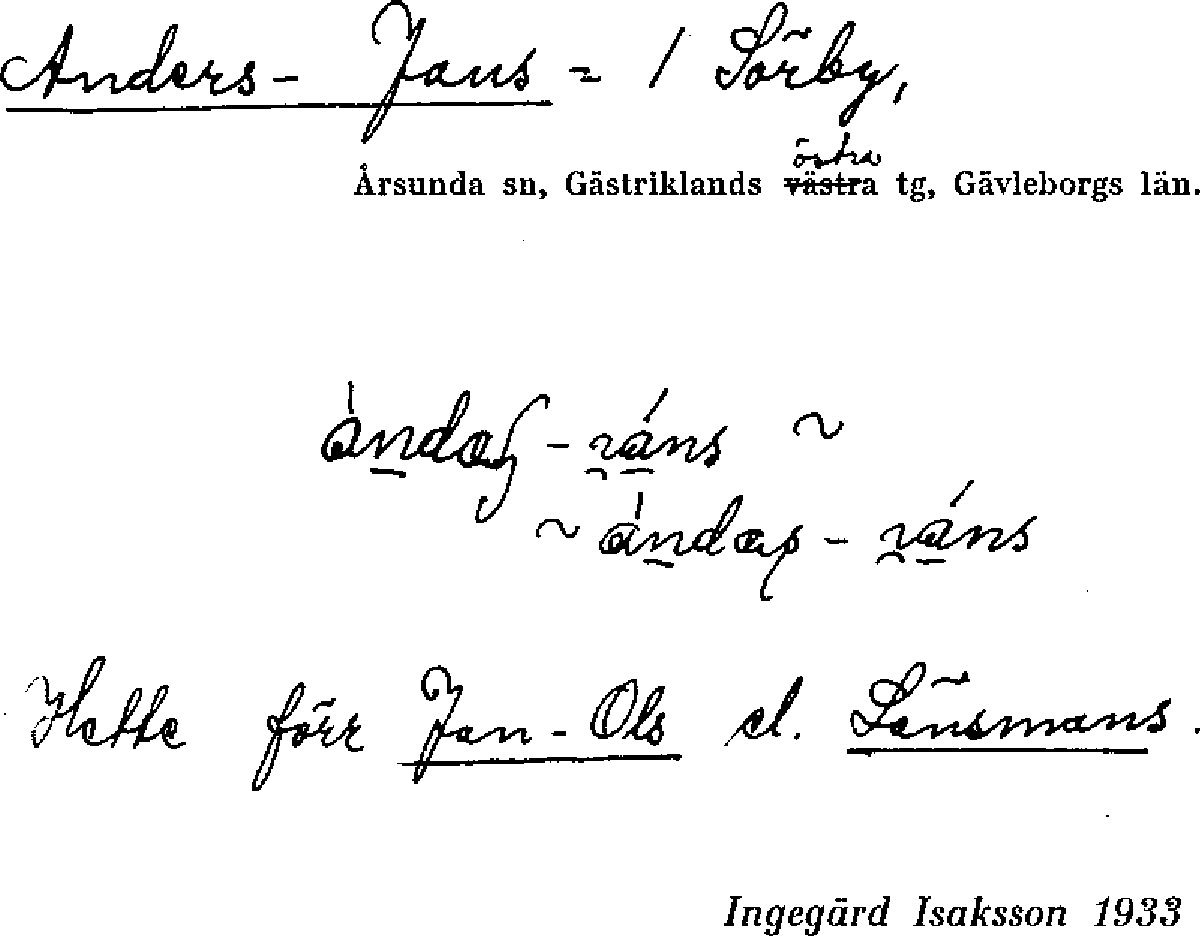 Anders-Jans = 1 Sörby,
östra
Årsunda sn, Gästriklands västra tg, Gävleborgs län.
Hette förr Jan-Ols el. Länsmans.
Ingegärd Isaksson 1933